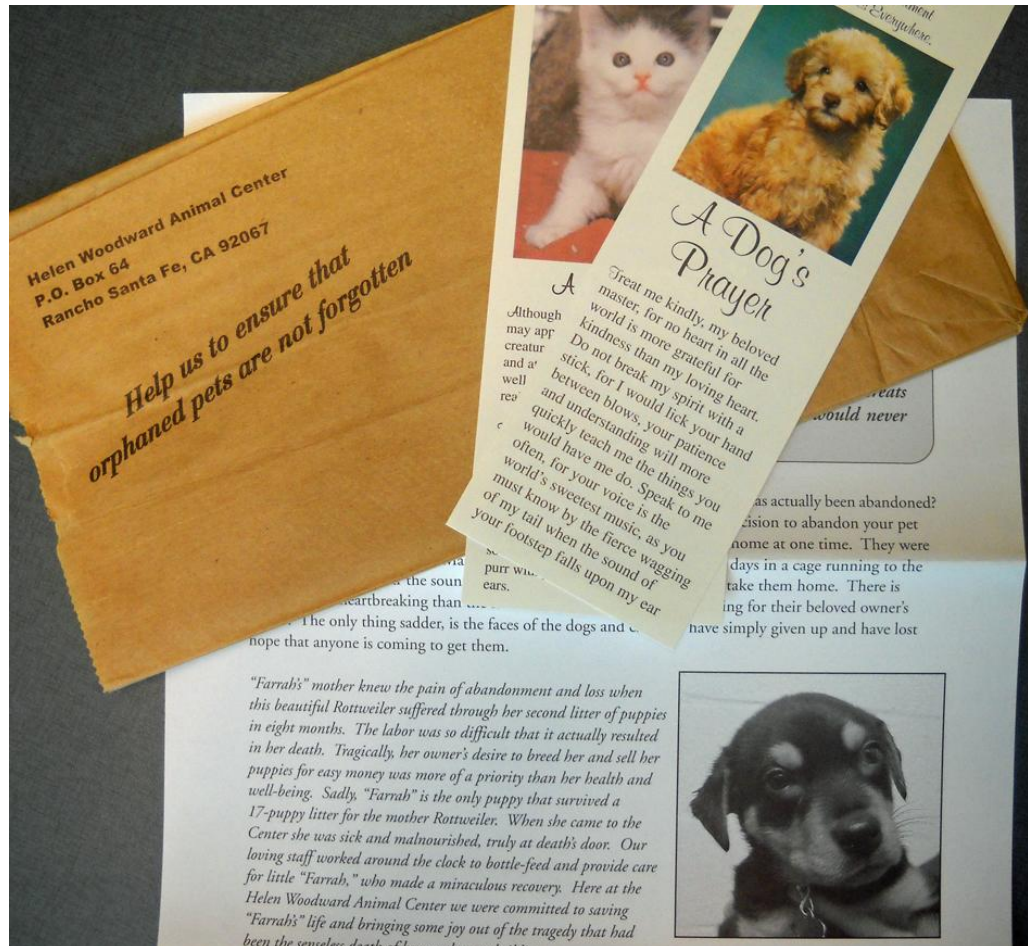 Helen Woodward Animal Center
P.O. Box 64
Rancho Santa Fe, CA 92067
Help us to ensure that
orphaned pets are not forgotten
Everywhere.
A
Although
may
and
well
purr
ears.
A Dog's
Prayer
Treat me kindly, my beloved
master, for no heart in all the
world is more grateful for
kindness than my loving heart.
Do not break my spirit with a
stick, for I would lick your hand
between blows, your patience
and understanding will more
quickly teach me the things you
would have me do. Speak to me
often, for your voice is the
world's sweetest music, as you
must know by the fierce wagging
of my tail when the sound of
your footstep falls upon my ear
would never
as actually been abandoned?
to abandon your pet
home at one time. They were
days in a cage running to the
the soun take them home. There is
than ing for their beloved owner's
The only thing sadder, is the faces of the dogs and have simply given up and have lost
hope that anyone is coming to get them.
"Farrah's" mother knew the pain of abandonment and loss when
this beautiful Rottweiler suffered through her second litter of puppies
in eight months. The labor was so difficult that it actually resulted
in her death. Tragically, her owner's desire to breed her and sell her
puppies for easy money was more of a priority than her health and
well-being. Sadly, "Farrah" is the only puppy that survived a
17-puppy litter for the mother Rottweiler. When she came to the
Center she was sick and malnourished, truly at death's door. Our
loving staff worked around the clock to bottle-feed and provide care
for little "Farrah," who made a miraculous recovery. Here at the
Helen Woodward Animal Center we were committed to saving
"Farrah's" life and bringing some joy out of the tragedy that had
been the senseless death of